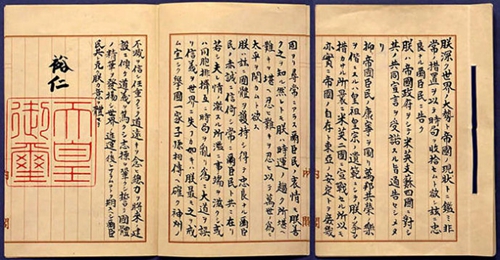 朕深ク世界ノ大勢ト帝國ノ現狀トニ鑑ミ非
常ノ措置ヲ以テ時局ヲ收拾セムト欲シ茲ニ忠
良ナル爾臣民ニ告ク
朕ハ帝國政府ヲシテ米英支蘇四國ニ對シ
其ノ共同宣言ヲ受諾スル旨通告セシメタリ
抑〻帝國臣民ノ康寧ヲ圖リ萬邦共榮ノ樂
ヲ偕ニスルハ皇祖皇宗ノ遺範ニシテ朕ノ拳々
措カサル所曩ニ米英二國ニ宣戰セル所以モ
亦實ニ帝國ノ自存ト東亞ノ安定トヲ庶幾
固ヨリ尋常ニアラス爾臣民ノ衷情モ朕善
ク之ヲ知ル然レトモ朕ハ時運ノ趨ク所堪ヘ
難キヲ堪ヘ忍ヒ難キヲ忍ヒ以テ萬世ノ爲ニ
太平ヲ開カムト欲ス
朕ハ茲ニ國體ヲ護持シ得テ忠良ナル爾臣
民ノ赤誠ニ信倚シ常ニ爾臣民ト共ニ在リ
若シ夫レ情ノ激スル所濫ニ事端ヲ滋クシ或
ハ同胞排擠互ニ時局ヲ亂リ爲ニ大道ヲ誤
リ信義ヲ世界ニ失フカ如キハ朕最モ之ヲ戒
ム宜シク擧國一家子孫相傳ヘ確ク神州ノ
不滅ヲ信シ任重クシテ道遠キヲ念ヒ總力ヲ將來ノ建
設ニ傾ケ道義ヲ篤クシ志操ヲ鞏クシ誓テ國體
ノ精華ヲ發揚シ世界ノ進運ニ後レサラムコトヲ期スヘシ爾臣
民其レ克ク朕カ意ヲ體セヨ
裕仁
天皇
御璽